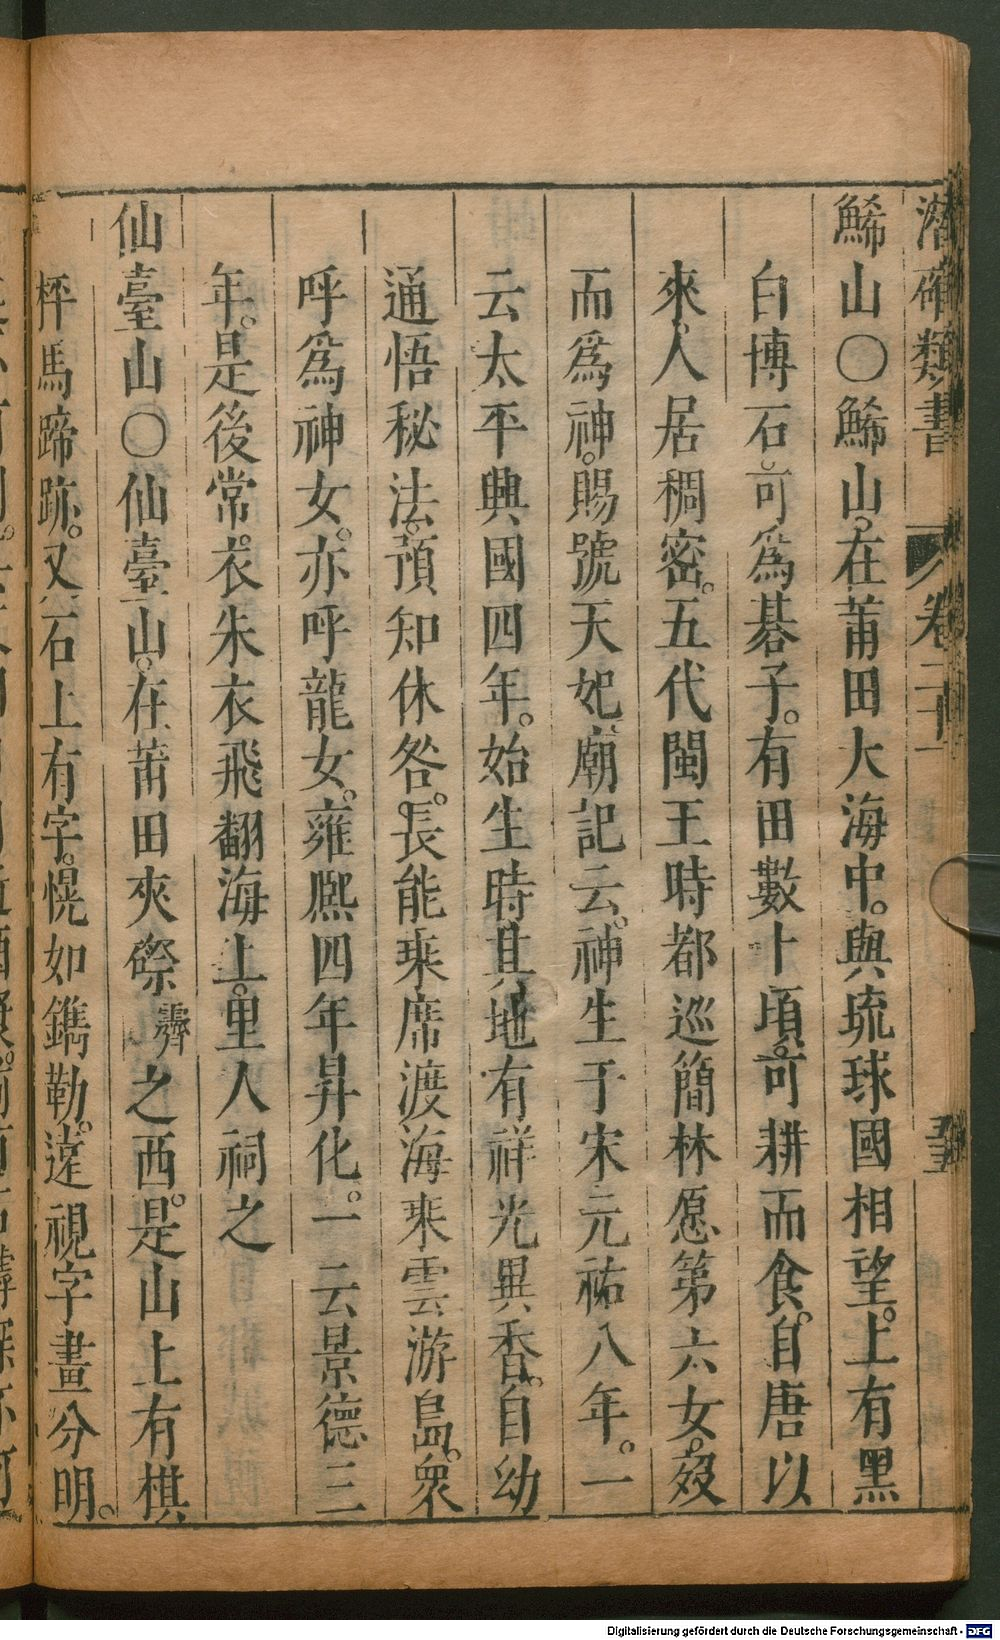 潛確類書 卷二十一
鯑山〇鯑山。在莆田大海中。與琉球國相望。上有黑
白博石。可爲碁子。有田數十頃。可耕而食。自唐以
來。人居稠密。五代閩王時都巡簡林愿第六女。歿
而爲神。賜號天妃。廟記云。神生于宋元祐八年。一
云太平興國四年。始生時。其地有祥光異香。自幼
通悟秘法。預知休咎。長能乘席渡海乘雲游島。衆
呼爲神女。亦呼龍女。雍熙四年昇化。一云景德三
年。是後常衣朱衣飛翻海上。里人祠之
仙臺山〇仙臺山。在莆田夾漈之西。是山上有棋
枰馬蹄跡。又石上有字。恍如鐫勒。遠視字畫分明。
Digitalisierung gefördert durch die Deutsche Forschungsgemeinschaft - DFG